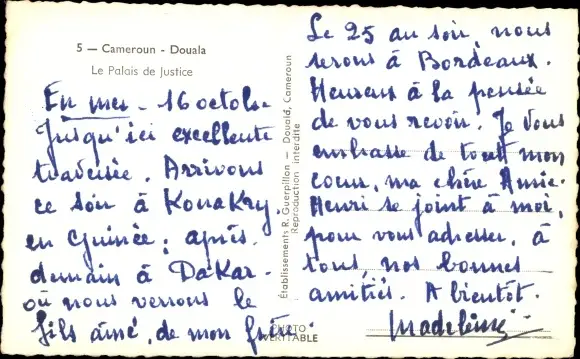 5 — Cameroun - Douala
Le Palais de Justice
En mer - 16 octob.
Jusqu'ici excellente
traversée. Arrivons
ce soir à KonaKry.
en Guinée; après.
demain à DaKar.
où nous verrons le
fils aîné, de mon frère.
Établissements R. Guerpillon — Douala, Cameroun
Reproduction interdite
PHOTO
VERITABLE
Le 25 au soir, nous
serons à Bordeaux.
Heureux à la pensée
de vous revoir. Je vous
embrasse de tout mon
coeur, ma chère Amie.
Henri se joint à moi,
pour vous adresser, à
tous, nos bonnes
amitiés. A bientôt.
Madeleine